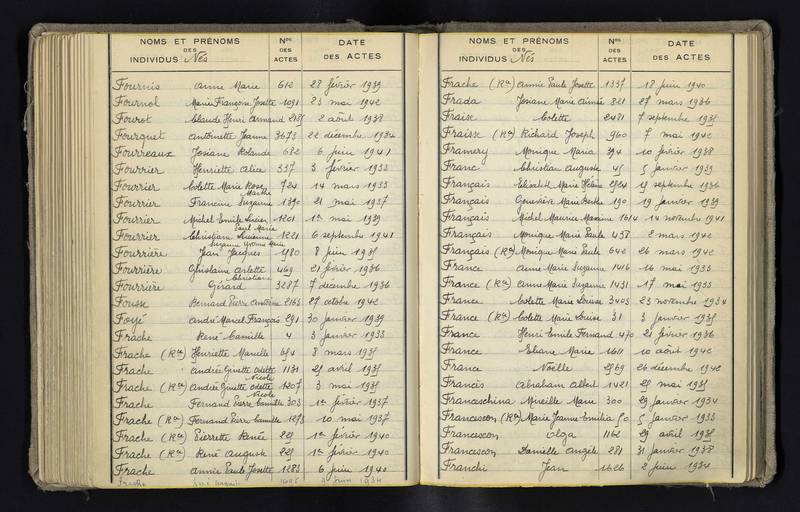 NOMS ET PRÉNOMS DES INDIVIDUS Nés
Nos DES ACTES
DATE DES ACTES
Fournis Anne Marie 612 28 février 1939
Fournol Marie Françoise Josette 1091 23 mai 1942
Fourot Claude Henri Armand 2 août 1938
Fourquet Antoinette Jeanne 3673 22 décembre 1934
Fourreaux Josiane Rolande 682 6 juin 1941
Fourrier Henriette Alice 337 3 février 1933
Fourrier Colette Marie Rose Marthe 724 14 mars 1933
Fourrier Francine Suzanne 1390 21 mai 1937
Fourrier Michel Emile Lucien 1201 1er mai 1939
Fourrier Christiane Lucienne 1221 6 septembre 1941
Fourrière Jean Jacques 1780 8 juin
Fourrière Ghislaine Arlette 469 21 février 1936
Fourrière Gérard Christiane 3287 7 décembre 1936
Fousse Bernard Pierre Antoine 2163 27 octobre 1942
Foyé André Marcel François 291 30 janvier 1939
Frache René Camille 4 3 janvier 1933
Frache (Ron) Henriette Marcelle 654 8 mars
Frache Andrée Ginette Odette Nicole 1131 avril
Frache (Ron) Andrée Ginette Odette Nicole 1207 3 mai
Frache Fernand Pierre Camille 303 1er février 1937
Frache (Ron) Fernand Pierre Camille 1273 10 mai 1937
Frache (Ron) Pierrette Renée 1er février 1940
Frache (Ron) René Auguste 1er février 1940
Frache Annie Paule Josette 1283 6 juin 1940
Frache juin 1934
NOMS ET PRÉNOMS DES INDIVIDUS Nés
Nos DES ACTES
DATE DES ACTES
Frache (Ron) Annie Paule Josette 1337 18 juin 1940
Frada Josiane Marie Aimée 821 27 mars 1936
Fraise Colette 2481 7 septembre
Fraisse (Ron) Richard Joseph 960 7 mai 1942
Framery Monique Maria 394 10 février 1938
Franc Christian Auguste 45 5 janvier 1939
Français Elisabeth Marie Hélène 19 septembre 1936
Français Geneviève Marie 190 19 janvier 1939
Français Michel Maurice Maxime 1614 14 novembre 1941
Français Monique Marie Paule 2 mars 1942
Français (Ron) Monique Marie Paule 642 26 mars 1942
France Anne Marie Suzanne 1416 16 mai 1933
France (Ron) Anne Marie Suzanne 1431 17 mai 1933
France Colette Marie Louise 3403 23 novembre 1934
France (Ron) Colette Marie Louise 31 3 janvier
France Henri Emile Fernand 470 21 février 1936
France Eliane Marie 1611 10 août 1942
France Noëlle 2569 26 décembre 1942
Francès Abraham Albert 1421 mai
Franceschina Mireille Marie 300 29 janvier 1934
Francescon (Ron) Marie Jeanne Emilia 50 5 janvier 1933
Francescon Olga 1162 29 avril
Francescon Danielle Angèle 281 31 janvier 1938
Franchi Jean 1626 2 juin 1934